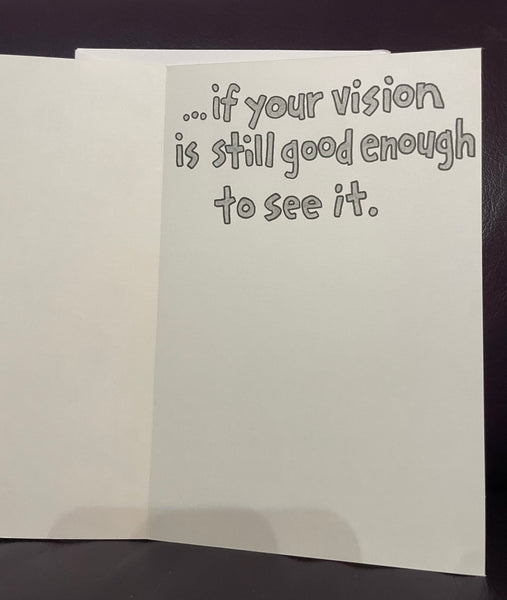 ...if your vision
is still good enough
to see it.